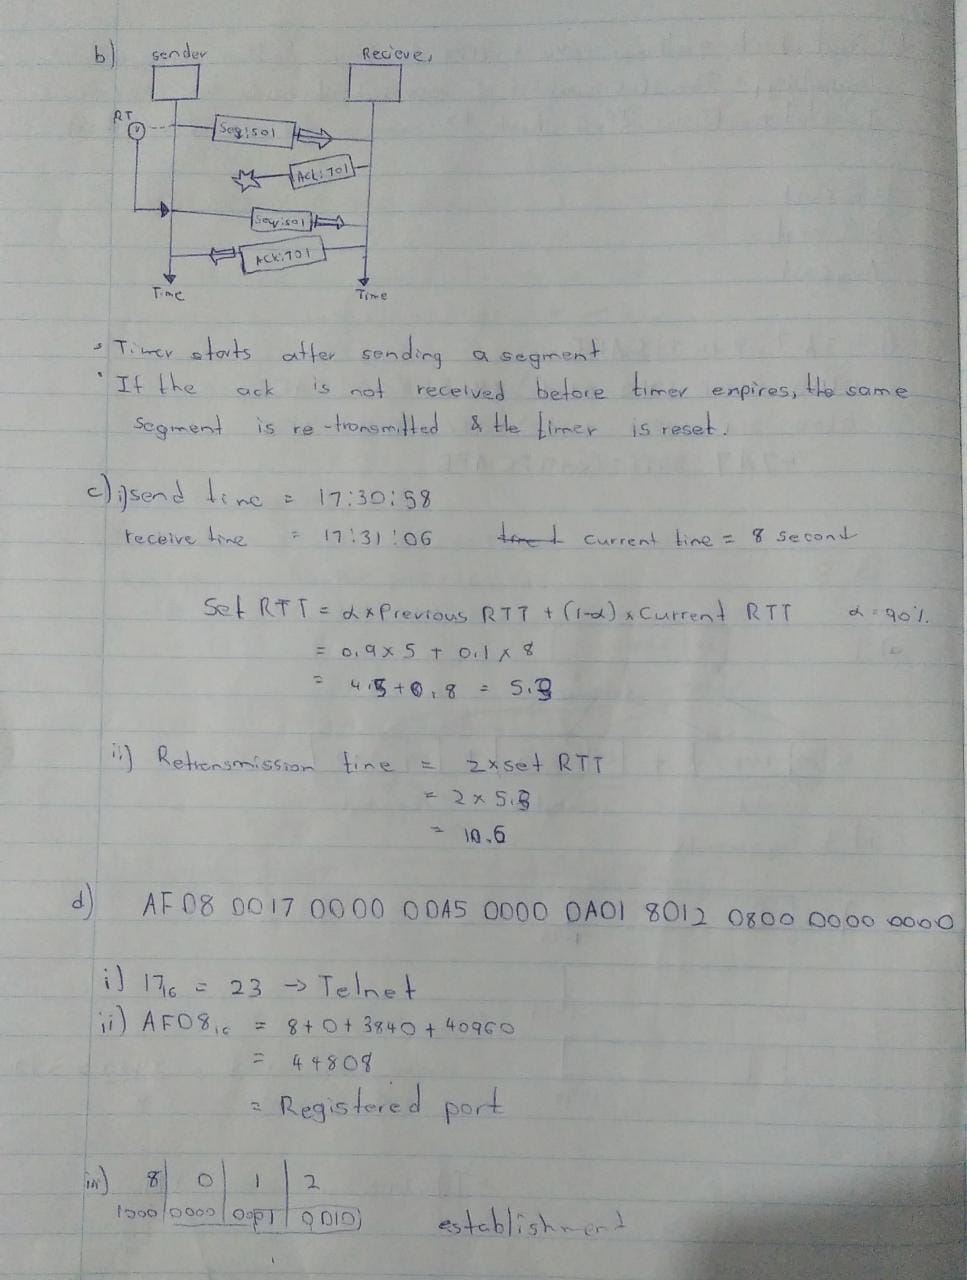 b) sender Recieve,
RT
Seq:501
Ack:701
Seq:501
Ack:701
Time Time
• Timer starts after sending a segment
• If the ack is not received before timer expires, the same
segment is re-transmitted & the timer is reset.
c) i) send time = 17:30:58
receive time = 17:31:06 current time = 8 second
Set RTT = α × Previous RTT + (1-α) × Current RTT α = 90%
= 0.9 × 5 + 0.1 × 8
= 4.5 + 0.8 = 5.3
ii) Retrensmission time = 2 × set RTT
= 2 × 5.3
= 10.6
d) AF08 0017 0000 00A5 0000 0A01 8012 0800 0000 0000
i) 17₁₆ = 23 → Telnet
ii) AF08₁₆ = 8+0+3840+40960
= 44808
= Registered port
iii) 8 | 0 | 1 | 2
1000 | 0000 | 0001 | 0010 establishment